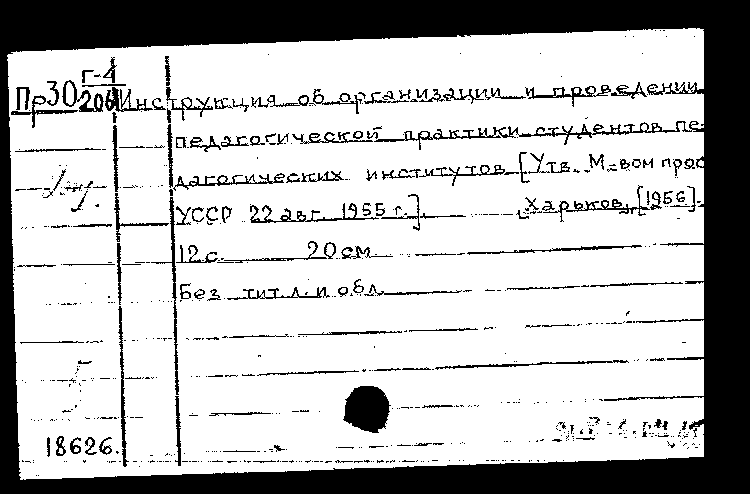 Пр30 Г-4
206
Инструкция об организации и проведении
педагогической практики студентов пе-
дагогических институтов [Утв. М-вом прос
УССР 22 авг. 1955 г.]. Харьков, [1956].
12 с. 20 см
Без тит. л. и обл.
5
18626.